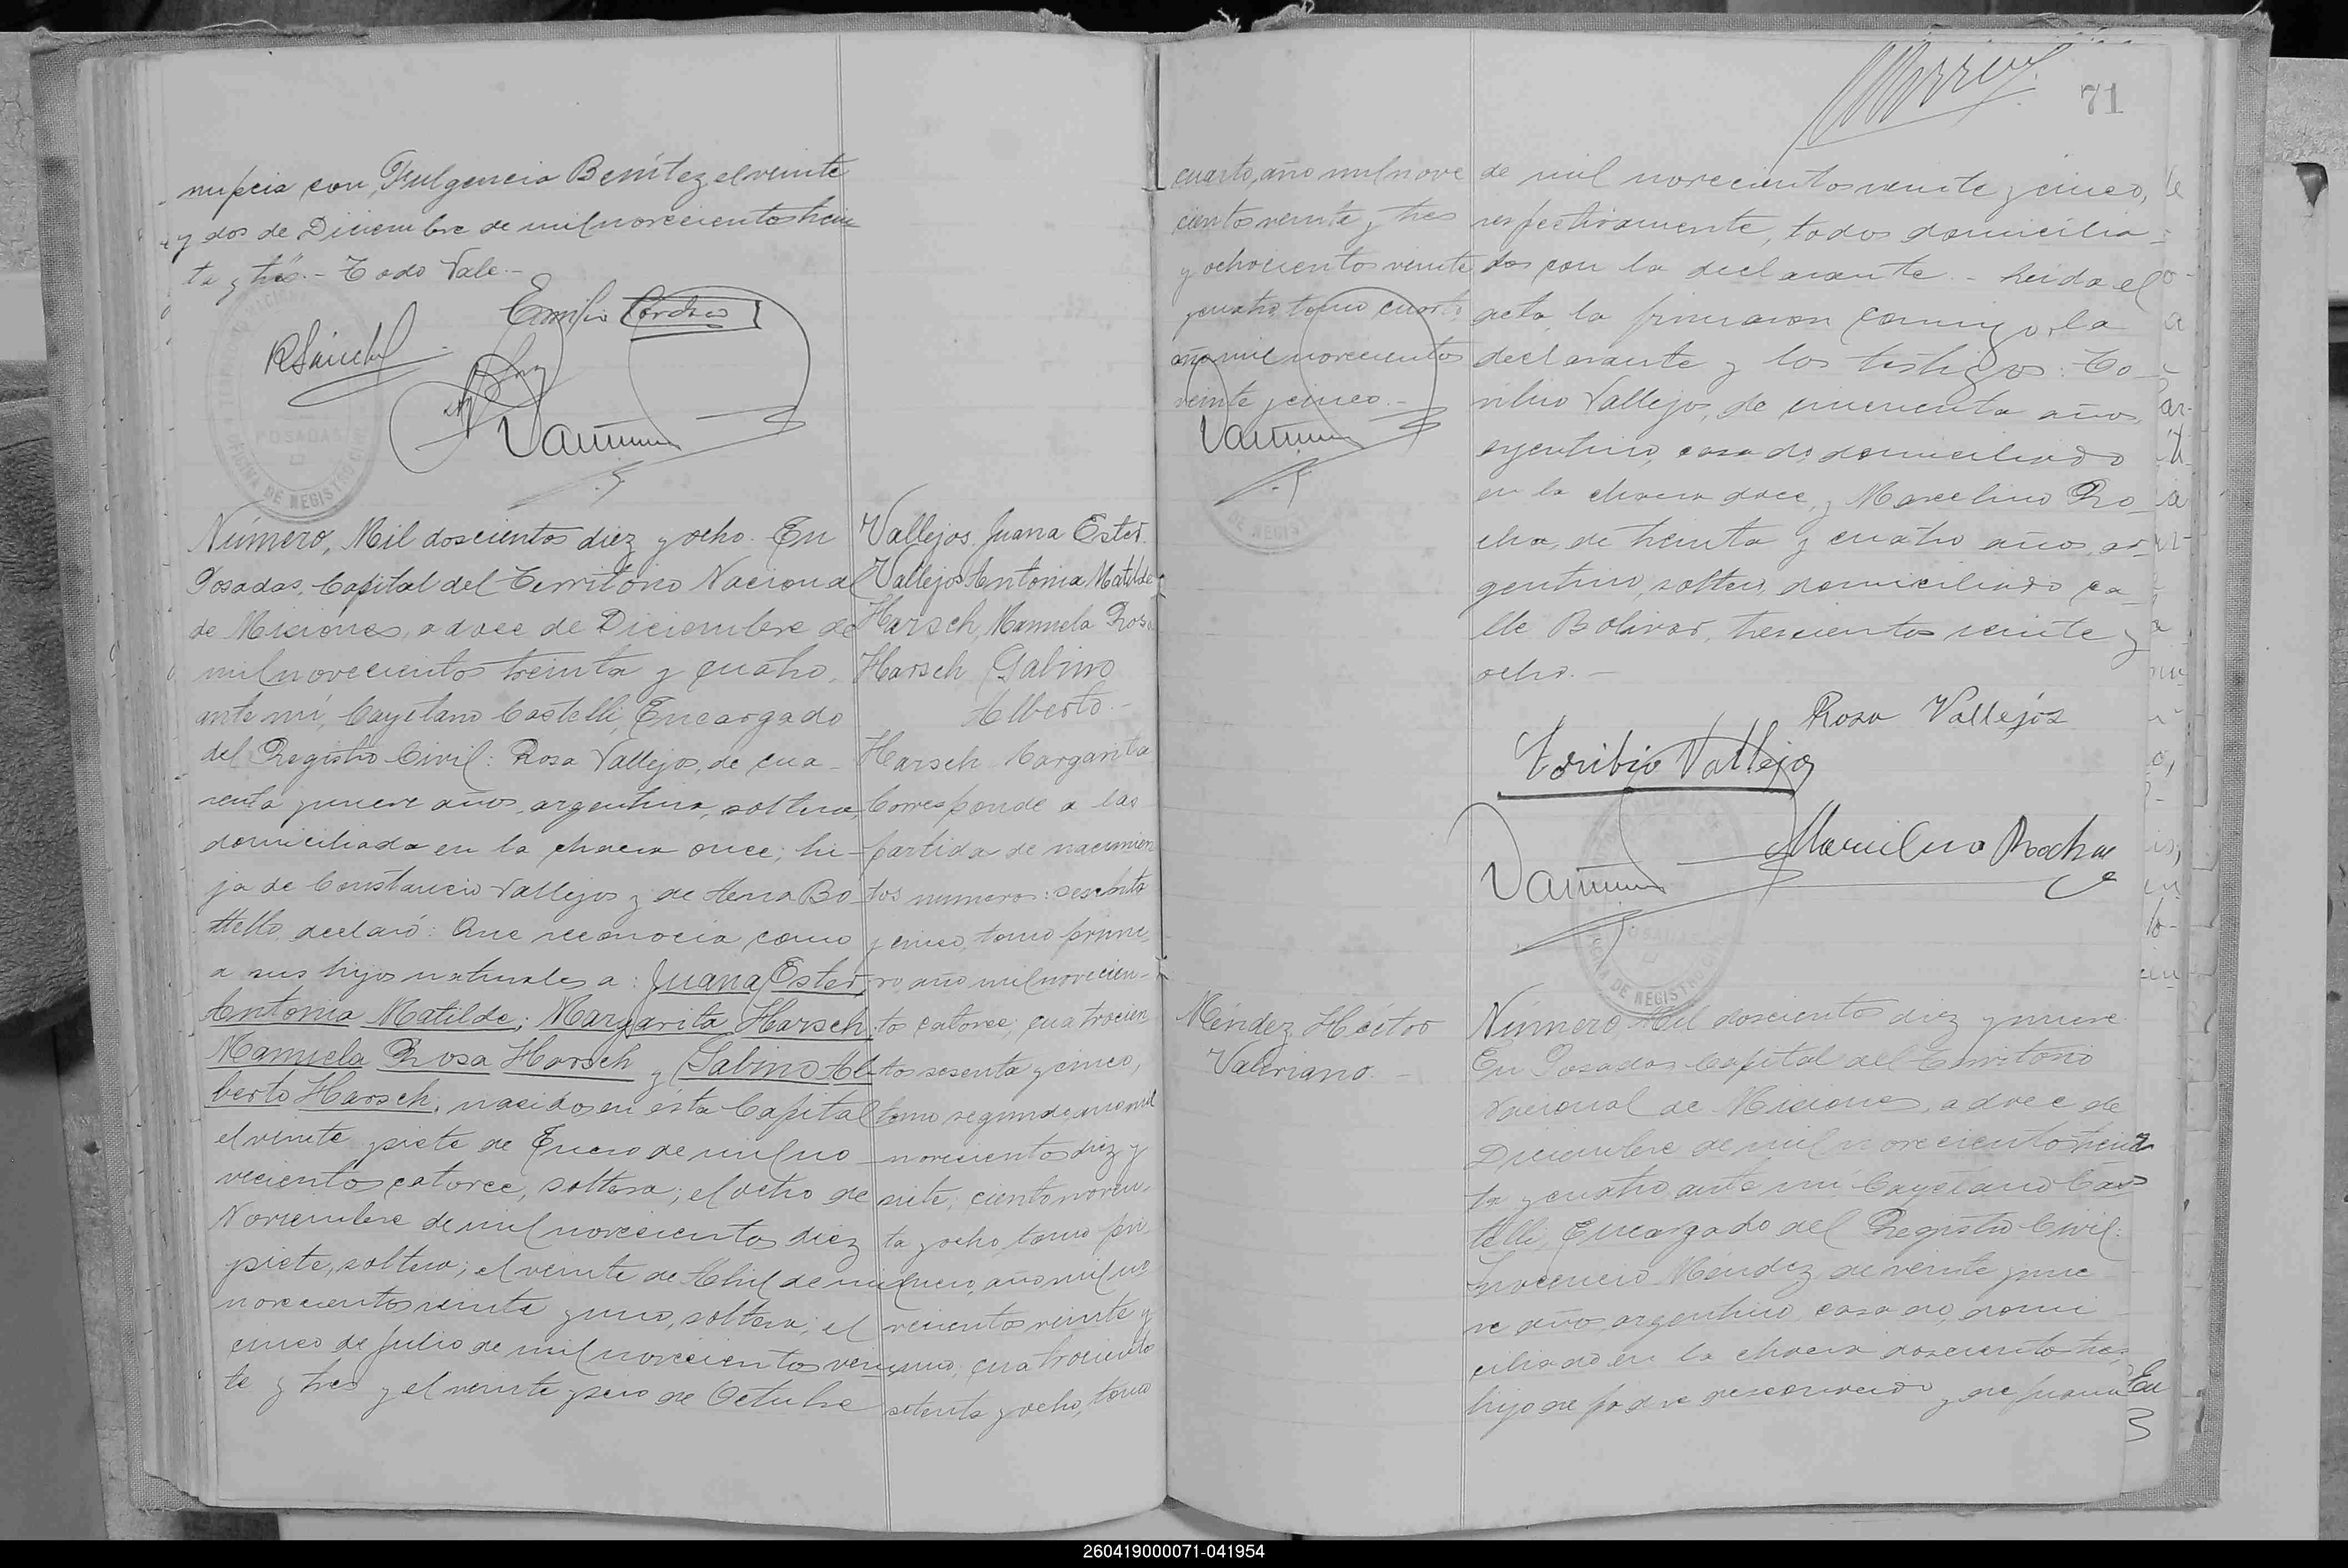 nupcia con Fulgencio Benítez el veinte
y dos de Diciembre de mil novecientos trein
ta y tres".- Todo Vale.-
Emilio Cordero
RSánchez
POSADAS
OFICINA DE REGISTRO CIVIL
Número, Mil doscientos diez y ocho. En
Posadas, Capital del Territorio Nacional
de Misiones, a doce de Diciembre de
mil novecientos treinta y cuatro,
ante mí, Cayetano Castelli, Encargado
del Registro Civil: Rosa Vallejos, de cua-
renta y nueve años, argentina, soltera,
domiciliada en la chacra once; hi-
ja de Constancio Vallejos y de Ana Bo-
ttello declaró: Que reconocía como
a sus hijos naturales a: Juana Ester,
Antonia Matilde; Margarita Harsch
Manuela Rosa Harsch y Gabino Al-
berto Harsch, nacidos en ésta Capital
el veinte y siete de Enero de mil no-
vecientos catorce, soltera; el ocho de
Noviembre de mil novecientos diez
y siete, soltera; el veinte de Abril de mil
novecientos veinte y uno, soltera; el
cinco de Julio de mil novecientos vein
te y tres y el veinte y seis de Octubre
Vallejos Juana Ester.
Vallejos Antonia Matilde
Harsch, Manuela Rosa
Harsch Gabino
Alberto.-
Harsch Margarita
Corresponde a las
partida de nacimien
tos numeros: sesenta
y cinco, tomo prime-
ro, año mil novecien-
tos catorce; cuatrocien
tos sesenta y cinco,
tomo segundo, año mil
novecientos diez y
siete; ciento noven-
ta y ocho tomo pri-
mero, año mil no
vecientos veinte y
uno; cuatrociento
setenta y ocho, tomo
cuarto, año mil nove
cientos veinte y tres
y ochocientos veinte
y cuatro, tomo cuarto,
año mil novecientos
veinte y cinco.-
DE REGIS
71
de mil novecientos veinte y cinco,
respectivamente, todos domicilia-
dos con la declarante.- Leida el
acta, la firmaron conmigo, la
declarante y los testigos: To-
ribio Vallejos, de cincuenta años,
argentino, casado, domiciliado
en la chacra doce, y Marcelino Ro-
cha, de treinta y cuatro años, ar-
gentino, soltero, domiciliado ca-
lle Bolivar, trescientos veinte y
ocho.-
Rosa Vallejos
Toribio Vallejos
Marcelino Rocha
POSADAS
OFICINA DE REGISTRO CIVIL
Méndez, Héctor
Valeriano.-
Número, Mil doscientos diez y nueve.
En Posadas Capital del Territorio
Nacional de Misiones, a doce de
Diciembre de mil novecientos trein
ta y cuatro ante mí Cayetano Cas
telli, Encargado del Registro Civil:
Inocencio Méndez, de veinte y nue
ve años, argentino, casado, domi-
ciliado en la chacra doscientos tres,
hijo de padre desconocido y de Juana
260419000071-041954